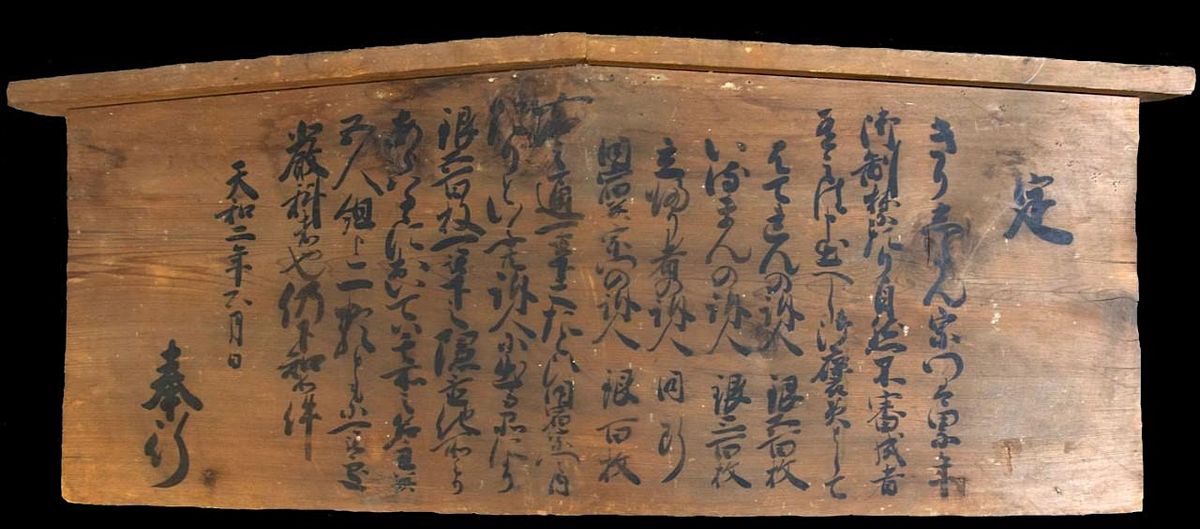 定
きりしたん宗門は累年
御制禁たり自然不審成者
有之は申出へし御褒美として
はてれんの訴人 銀五百枚
いるまんの訴人 銀三百枚
立帰り者の訴人 同断
同宿并宗門の訴人 銀百枚
右之通可被下之たとひ同宿宗門之内
たりといふ共訴人に出る品により
銀五百枚可被下之隠置他所より
あらはるゝにおいては其所之名主并
五人組迄一類ともに可被処
厳科者也仍下知如件
天和二年六月日
奉行